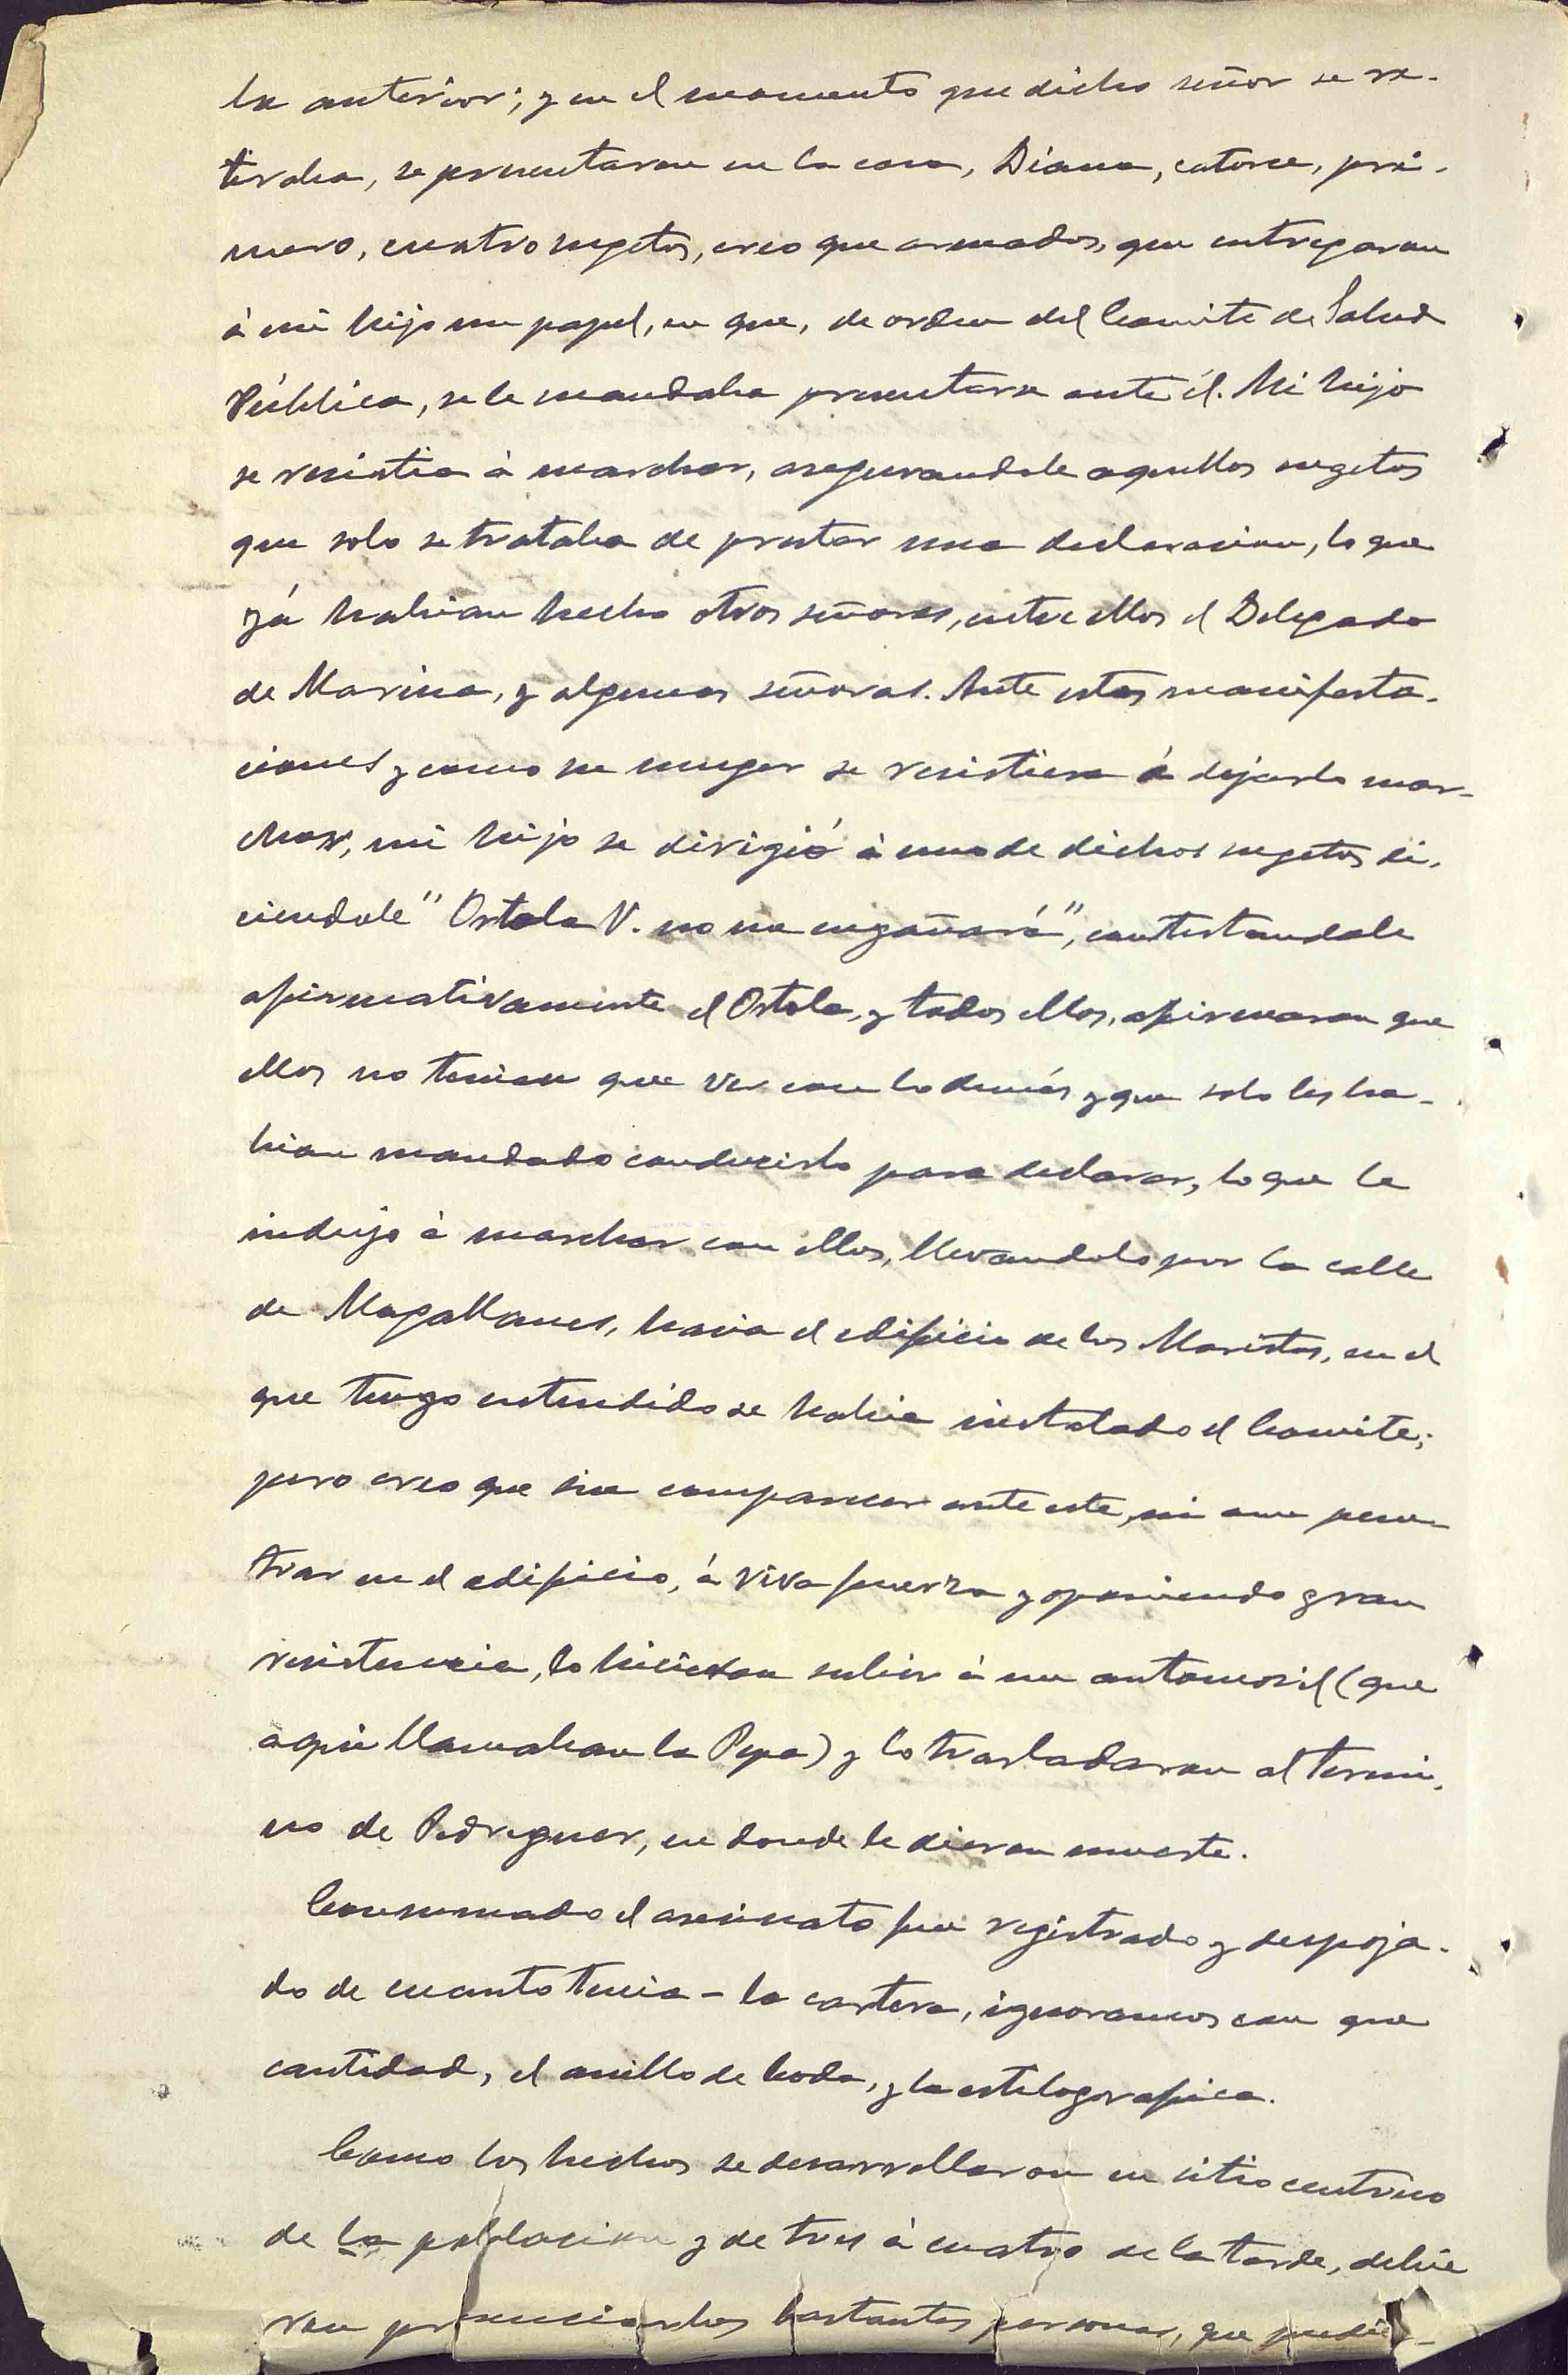 la anterior; y en el momento que dicho señor se re-
tiraba, se presentaron en la casa, Diana, catorce, pri-
mero, cuatro sugetos, creo que armados, que entregaron
á mi hijo un papel, en que, de orden del Comite de Salud
Pública, se le mandaba presentarse ante él. Mi hijo
se resistia á marchar, asegurandole aquellos sugetos
que solo se trataba de prestar una declaracion, lo que
yá habian hecho otros señores, entre ellos el Delegado
de Marina, y algunas señoras. Ante estas manifesta-
ciones y como su muger se resistiera á dejarlo mar-
char, mi hijo se dirigió á uno de dichos sugetos di-
ciendole "Ostola V. no me engañará", contestandole
afirmativamente el Ostola, y todos ellos, afirmaron que
ellos no tenian que ver con lo demás y que solo les ha-
bian mandado conducirlo para declarar, lo que le
indujo á marchar con ellos, llevandolo por la calle
de Magallanes, hacia el edificio de los Maristas, en el
que tengo entendido se habia instalado el Comite;
pero creo que sin comparecer ante este, ni aun pene-
trar en el edificio, á viva fuerza y oponiendo gran
resistencia, lo hicieron subir á un automovil (que
aqui llamaban la Pepa) y lo trasladaron al termi-
no de Pedreguer, en donde le dieron muerte.
Consumado el asesinato fue registrado y despoja-
do de cuanto tenia - la cartera, ignoramos con que
cantidad, el anillo de boda, y la estilografica.
Como los hechos se desarrollaron en sitio centrico
de la poblacion y de tres á cuatro de la tarde, debie
ron presenciarlos bastantes personas, que pudie-